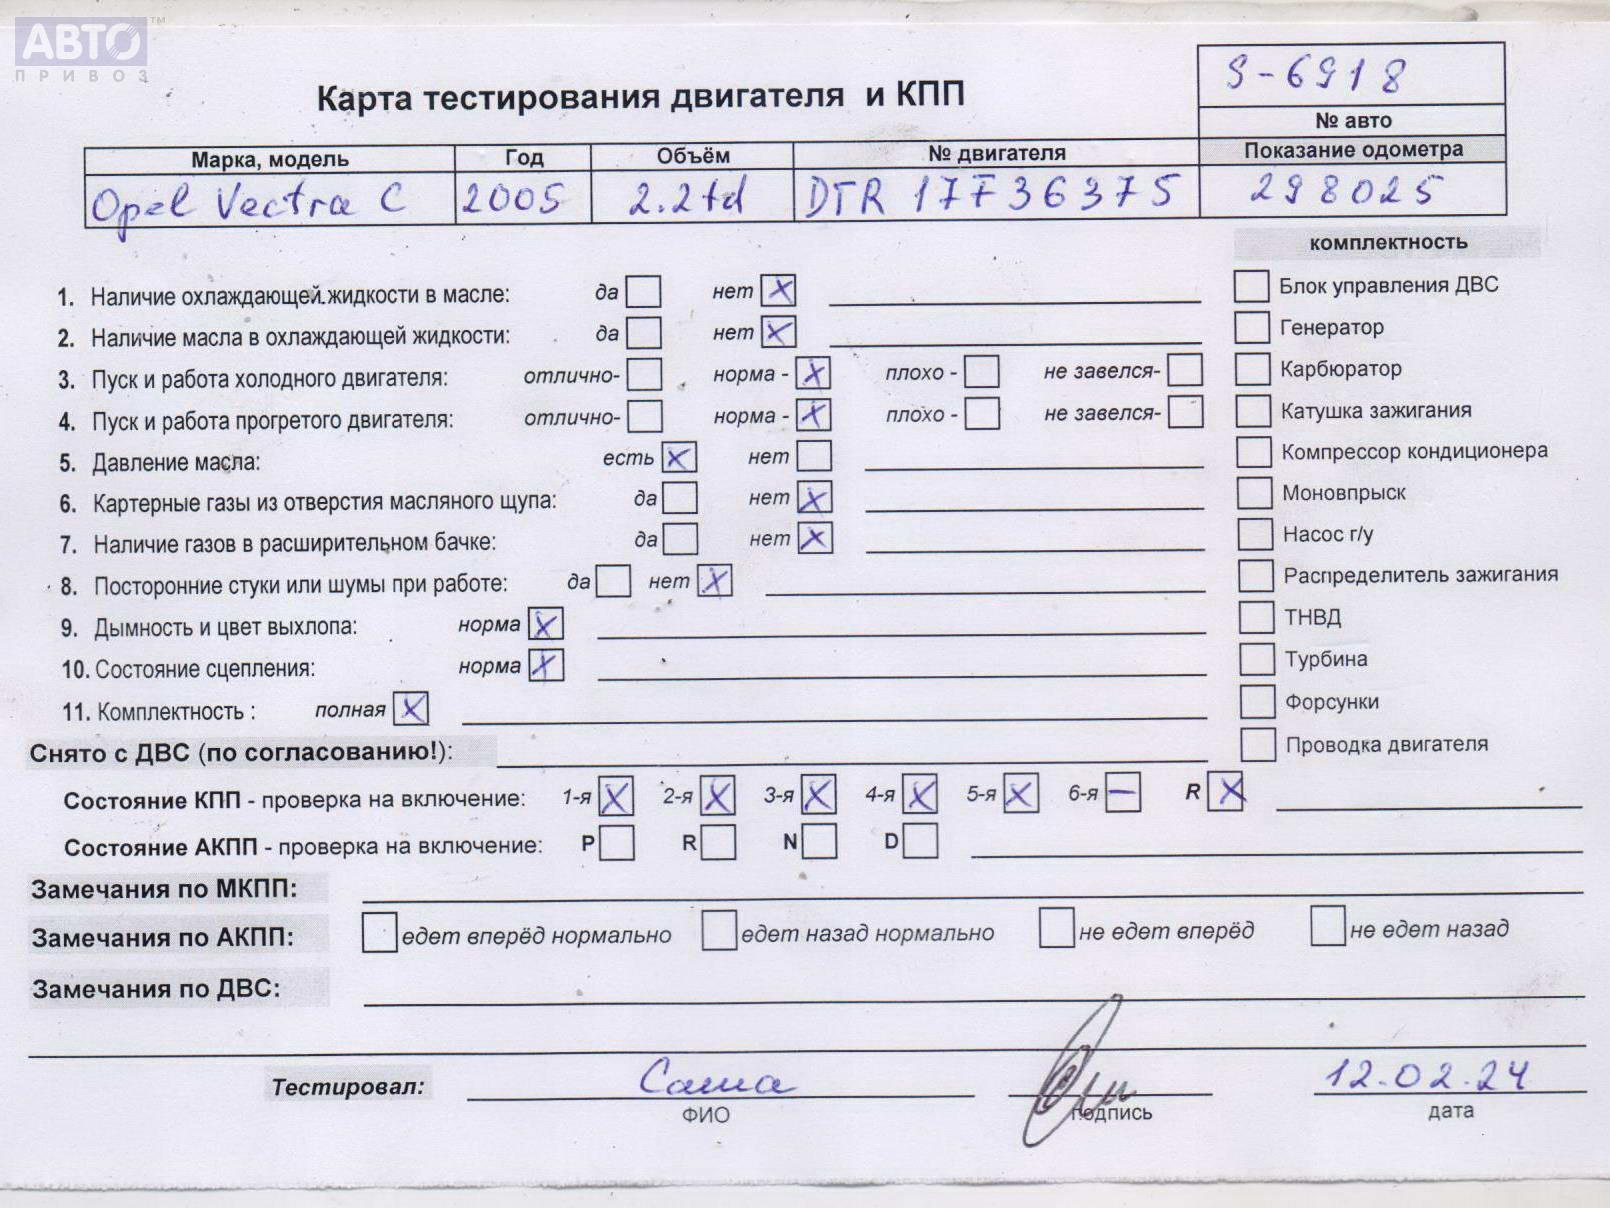 АВТО™
ПРИВОЗ
S-6918
№ авто
Карта тестирования двигателя и КПП
Марка, модель Год Объём № двигателя Показание одометра
Opel Vectra C 2005 2.2td DTR 17F36375 298025
комплектность
1. Наличие охлаждающей жидкости в масле: да нет X
2. Наличие масла в охлаждающей жидкости: да нет X
3. Пуск и работа холодного двигателя: отлично- норма - X плохо - не завелся-
4. Пуск и работа прогретого двигателя: отлично- норма - X плохо - не завелся-
5. Давление масла: есть X нет
6. Картерные газы из отверстия масляного щупа: да нет X
7. Наличие газов в расширительном бачке: да нет X
8. Посторонние стуки или шумы при работе: да нет X
9. Дымность и цвет выхлопа: норма X
10. Состояние сцепления: норма X
11. Комплектность : полная X
Блок управления ДВС
Генератор
Карбюратор
Катушка зажигания
Компрессор кондиционера
Моновпрыск
Насос г/у
Распределитель зажигания
ТНВД
Турбина
Форсунки
Проводка двигателя
Снято с ДВС (по согласованию!):
Состояние КПП - проверка на включение: 1-я X 2-я X 3-я X 4-я X 5-я X 6-я — R X
Состояние АКПП - проверка на включение: P R N D
Замечания по МКПП:
Замечания по АКПП: едет вперёд нормально едет назад нормально не едет вперёд не едет назад
Замечания по ДВС:
Тестировал: Саша 12.02.24
ФИО подпись дата